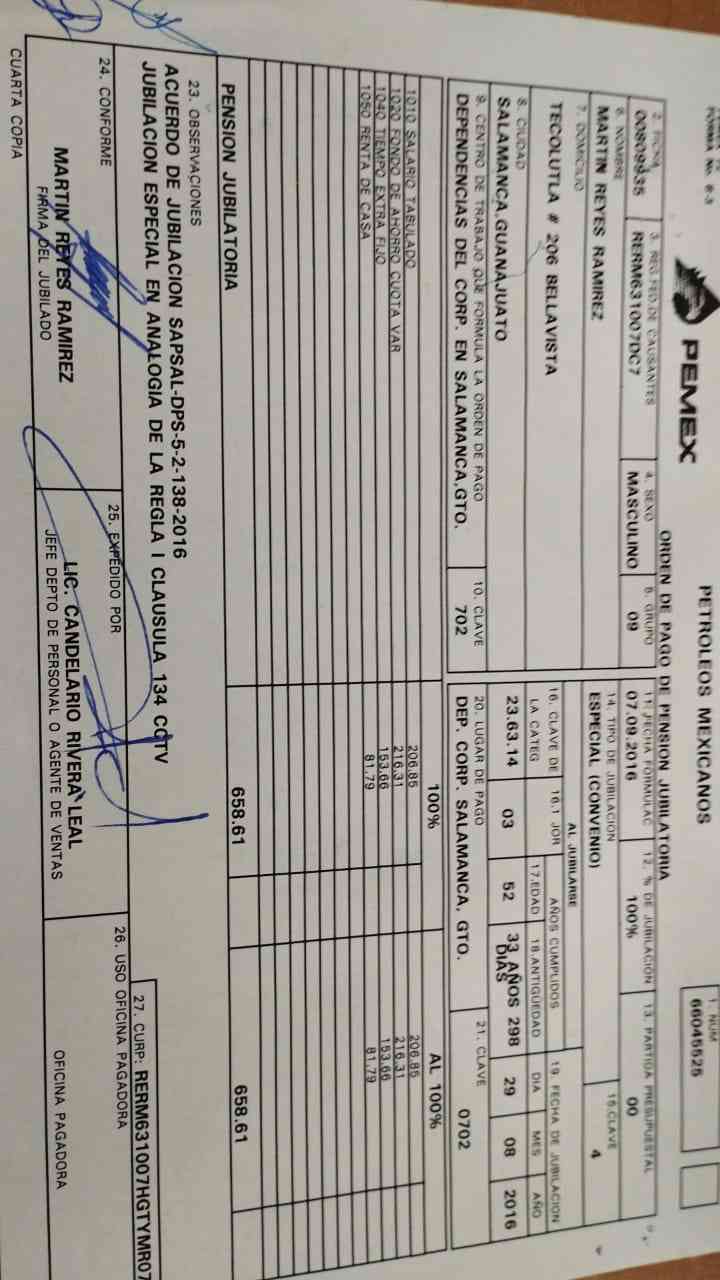 FORMA No. 6-3
PEMEX
PETROLEOS MEXICANOS
ORDEN DE PAGO DE PENSION JUBILATORIA
1. NUM
66045525
2. FICHA
00809935
3. REG FED. DE CAUSANTES
RERM631007DC7
4. SEXO
MASCULINO
5. GRUPO
09
11. FECHA FORMULAC
07.09.2016
12. % DE JUBILACIÓN
100%
13. PARTIDA PRESUPUESTAL
00
6. NOMBRE
MARTIN REYES RAMIREZ
14. TIPO DE JUBILACION
ESPECIAL (CONVENIO)
15. CLAVE
4
7. DOMICILIO
TECOLUTLA # 206 BELLAVISTA
AL JUBILARSE
8. CIUDAD
SALAMANCA,GUANAJUATO
16. CLAVE DE LA CATEG
23.63.14
16.1 JOR
03
AÑOS CUMPLIDOS
17.EDAD
52
18.ANTIGÜEDAD
33 AÑOS 298 DIAS
19. FECHA DE JUBILACION
DIA
MES
AÑO
29
08
2016
9. CENTRO DE TRABAJO QUE FORMULA LA ORDEN DE PAGO
DEPENDENCIAS DEL CORP. EN SALAMANCA,GTO.
10. CLAVE
702
20. LUGAR DE PAGO
DEP. CORP. SALAMANCA, GTO.
21. CLAVE
0702
100%
AL 100%
1010 SALARIO TABULADO 206.85 206.85
1020 FONDO DE AHORRO CUOTA VAR 216.31 216.31
1040 TIEMPO EXTRA FIJO 153.66 153.66
1050 RENTA DE CASA 81.79 81.79
PENSION JUBILATORIA 658.61 658.61
23. OBSERVACIONES
ACUERDO DE JUBILACION SAPSAL-DPS-5-2-138-2016
JUBILACION ESPECIAL EN ANALOGIA DE LA REGLA I CLAUSULA 134 CCTV
27. CURP: RERM631007HGTYMR07
24. CONFORME
MARTIN REYES RAMIREZ
FIRMA DEL JUBILADO
25. EXPEDIDO POR
LIC. CANDELARIO RIVERA LEAL
JEFE DEPTO DE PERSONAL O AGENTE DE VENTAS
26. USO OFICINA PAGADORA
OFICINA PAGADORA
CUARTA COPIA